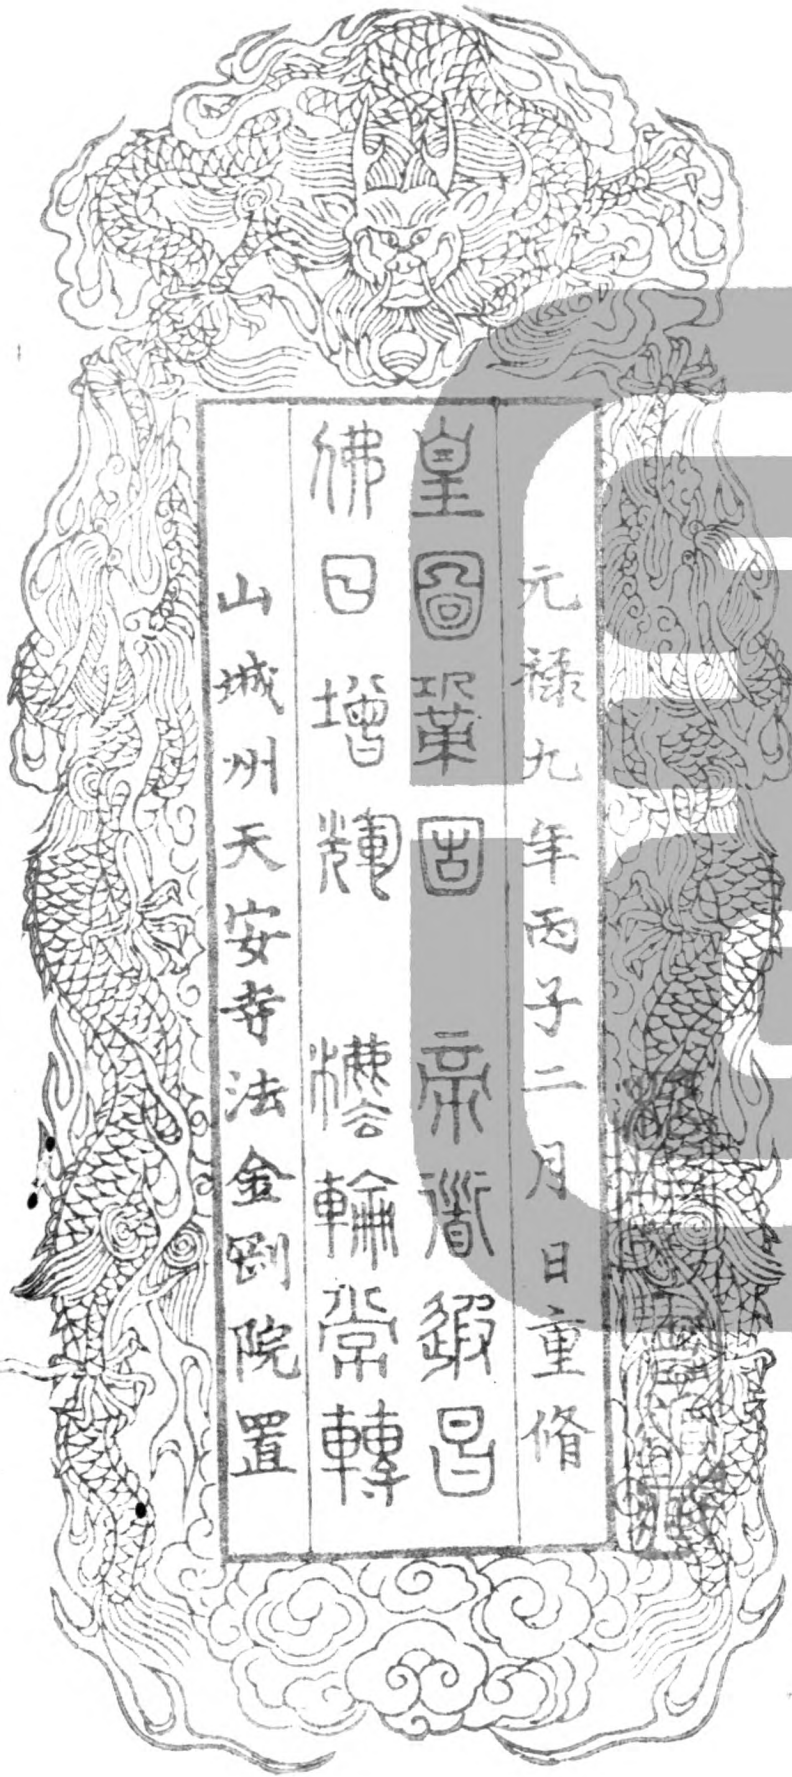 元禄九年丙子二月日重脩
皇圖鞏固 帝道遐昌
佛日增輝 灋輪常轉
山城州天安寺法金剛院置